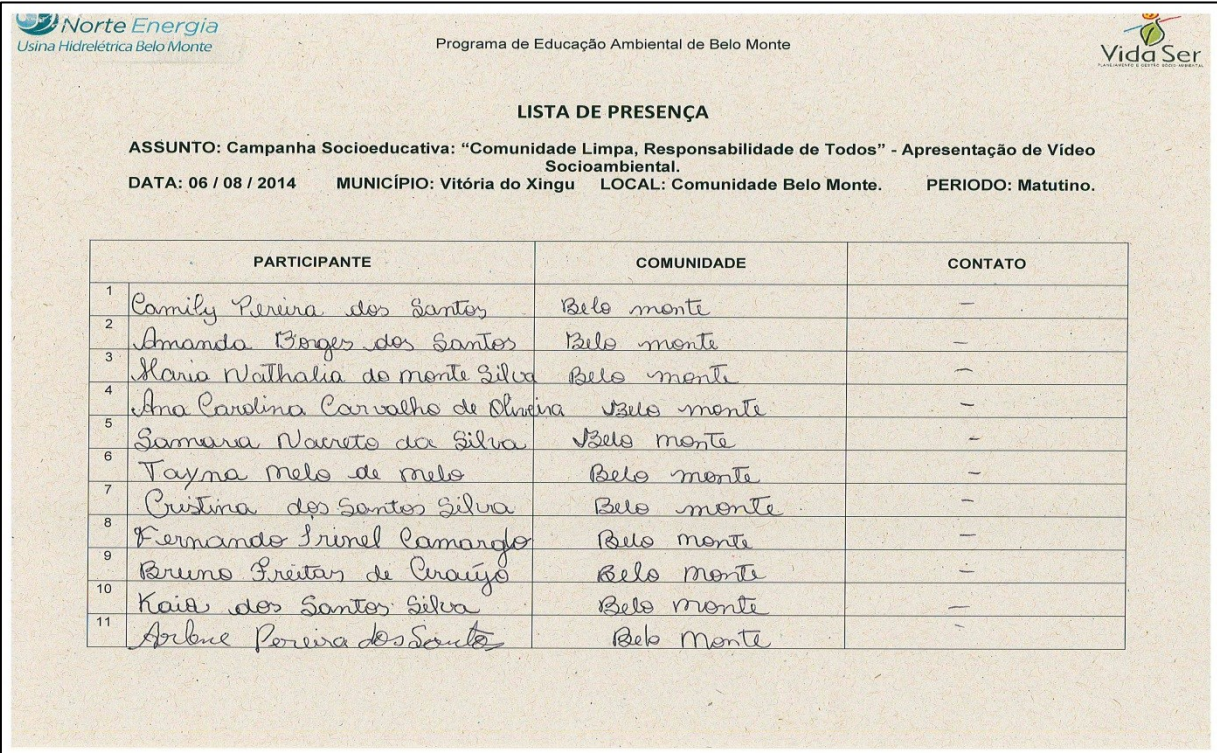 Norte Energia
Usina Hidrelétrica Belo Monte
Programa de Educação Ambiental de Belo Monte
Vida Ser
LISTA DE PRESENÇA
ASSUNTO: Campanha Socioeducativa: “Comunidade Limpa, Responsabilidade de Todos” - Apresentação de Vídeo
Socioambiental.
DATA: 06 / 08 / 2014 MUNICÍPIO: Vitória do Xingu LOCAL: Comunidade Belo Monte. PERIODO: Matutino.
PARTICIPANTE COMUNIDADE CONTATO
1 Camily Pereira dos Santos Belo monte –
2 Amanda Borges dos Santos Belo monte –
3 Maria Nathalia do monte Silva Belo monte –
4 Ana Carolina Carvalho de Oliveira Belo monte –
5 Samara Nacreto da Silva Belo monte –
6 Tayna melo de melo Belo monte –
7 Cristina dos Santos Silva Belo monte –
8 Fernando Camargo Belo monte –
9 Bruno Freitas de Araújo Belo monte –
10 Kaia dos Santos Silva Belo monte –
11 Arlene Pereira dos Santos Belo Monte –